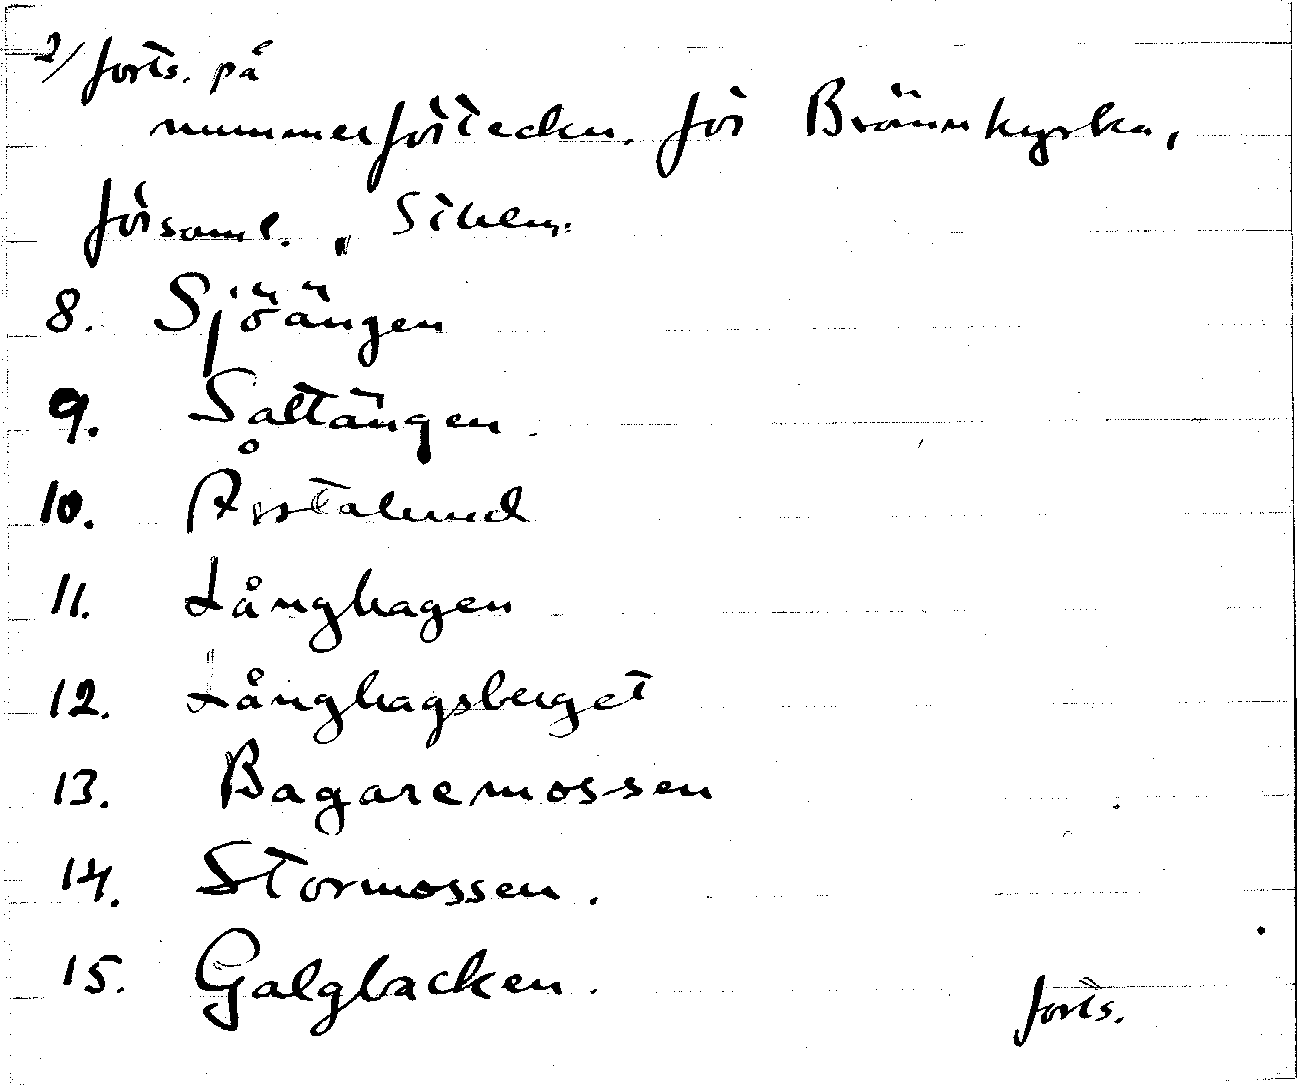 2/ forts. på
nummerförteckn. för Brännkyrka,
församl. „ Sthlm.
8. Sjöängen
9. Saltängen.
10. Årstalund
11. Långhagen
12. Långhagsberget
13. Bagaremossen
14. Stormossen.
15. Galgbacken.
forts.